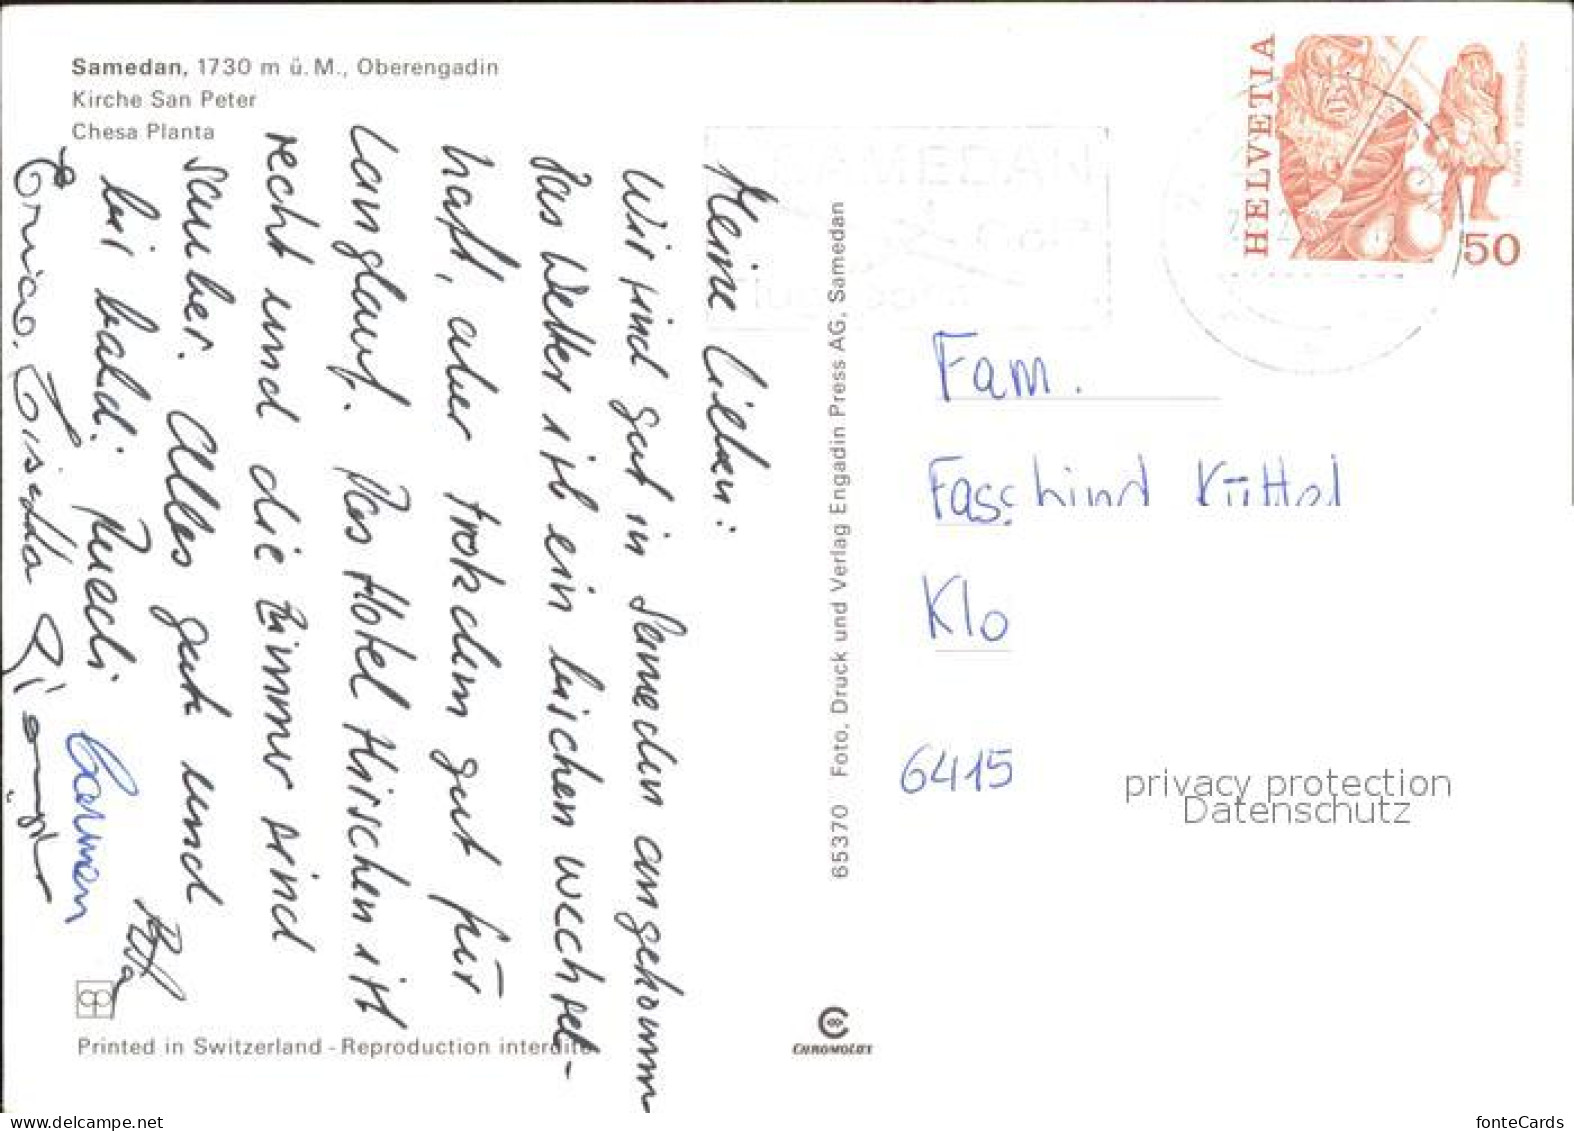 Samedan, 1730 m ü. M., Oberengadin
Kirche San Peter
Chesa Planta
Meine lieben:
Wir sind gut in Samedan angekomm
Das Wetter ist ein bischen wechsel-
haft, aber trotzdem gut für
Langlauf. Das Hotel Hirschen ist
recht und die Zimmer sind
sauber. Alles gute und
bis bald: Ruedi Carmen
Enrico.
Printed in Switzerland - Reproduction interdite
65370 Foto, Druck und Verlag Engadin Press AG, Samedan
CHROMOLUX
HELVETIA
50
SAMEDAN
Fam.
Fasschind Küttel
Klo
6415
privacy protection
Datenschutz
www.delcampe.net
fonteCards